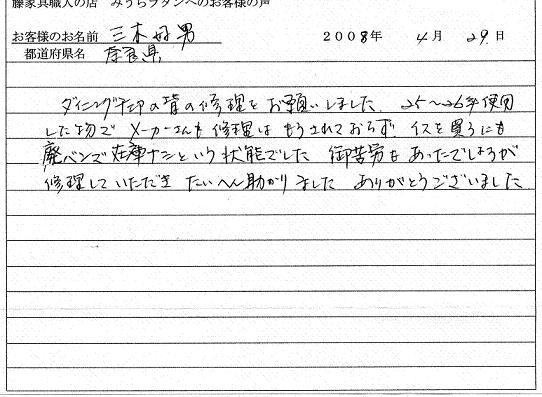 藤家具職人の店 みうらラタンへのお客様の声
お客様のお名前 三木好男 2008年 4月 29日
都道府県名 奈良県
ダイニングチェアの背の修理をお願いしました。25〜26年使用
した物で メーカーさんも修理はもうされておらず イスを買うにも
廃バンで在庫ナシという状態でした 御苦労もあったでしょうが
修理していただき たいへん助かりました ありがとうございました